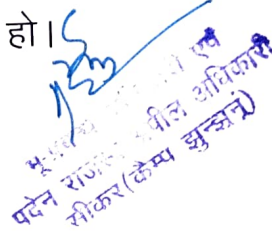 हो।
भू एवं
पदेन राजस्व अपील अधिकारी
सीकर(कैम्प झुन्झुनूं)